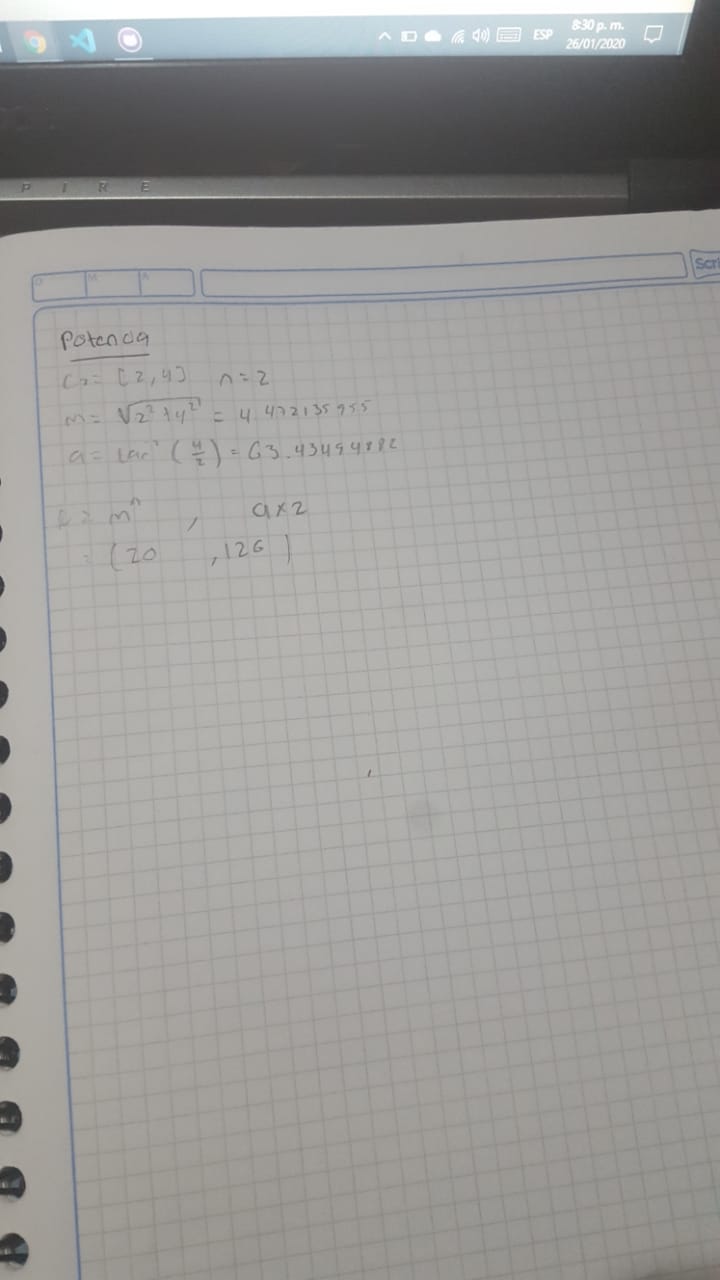 8:30 p. m.
ESP
26/01/2020
P I R E
D M A
Scri
Potencia
C1= [2,4] n=2
m= √2²+4² = 4.472135955
a= tan⁻¹ (4/2) = 63.43494882
C= mⁿ , a×2
= (20 ,126)